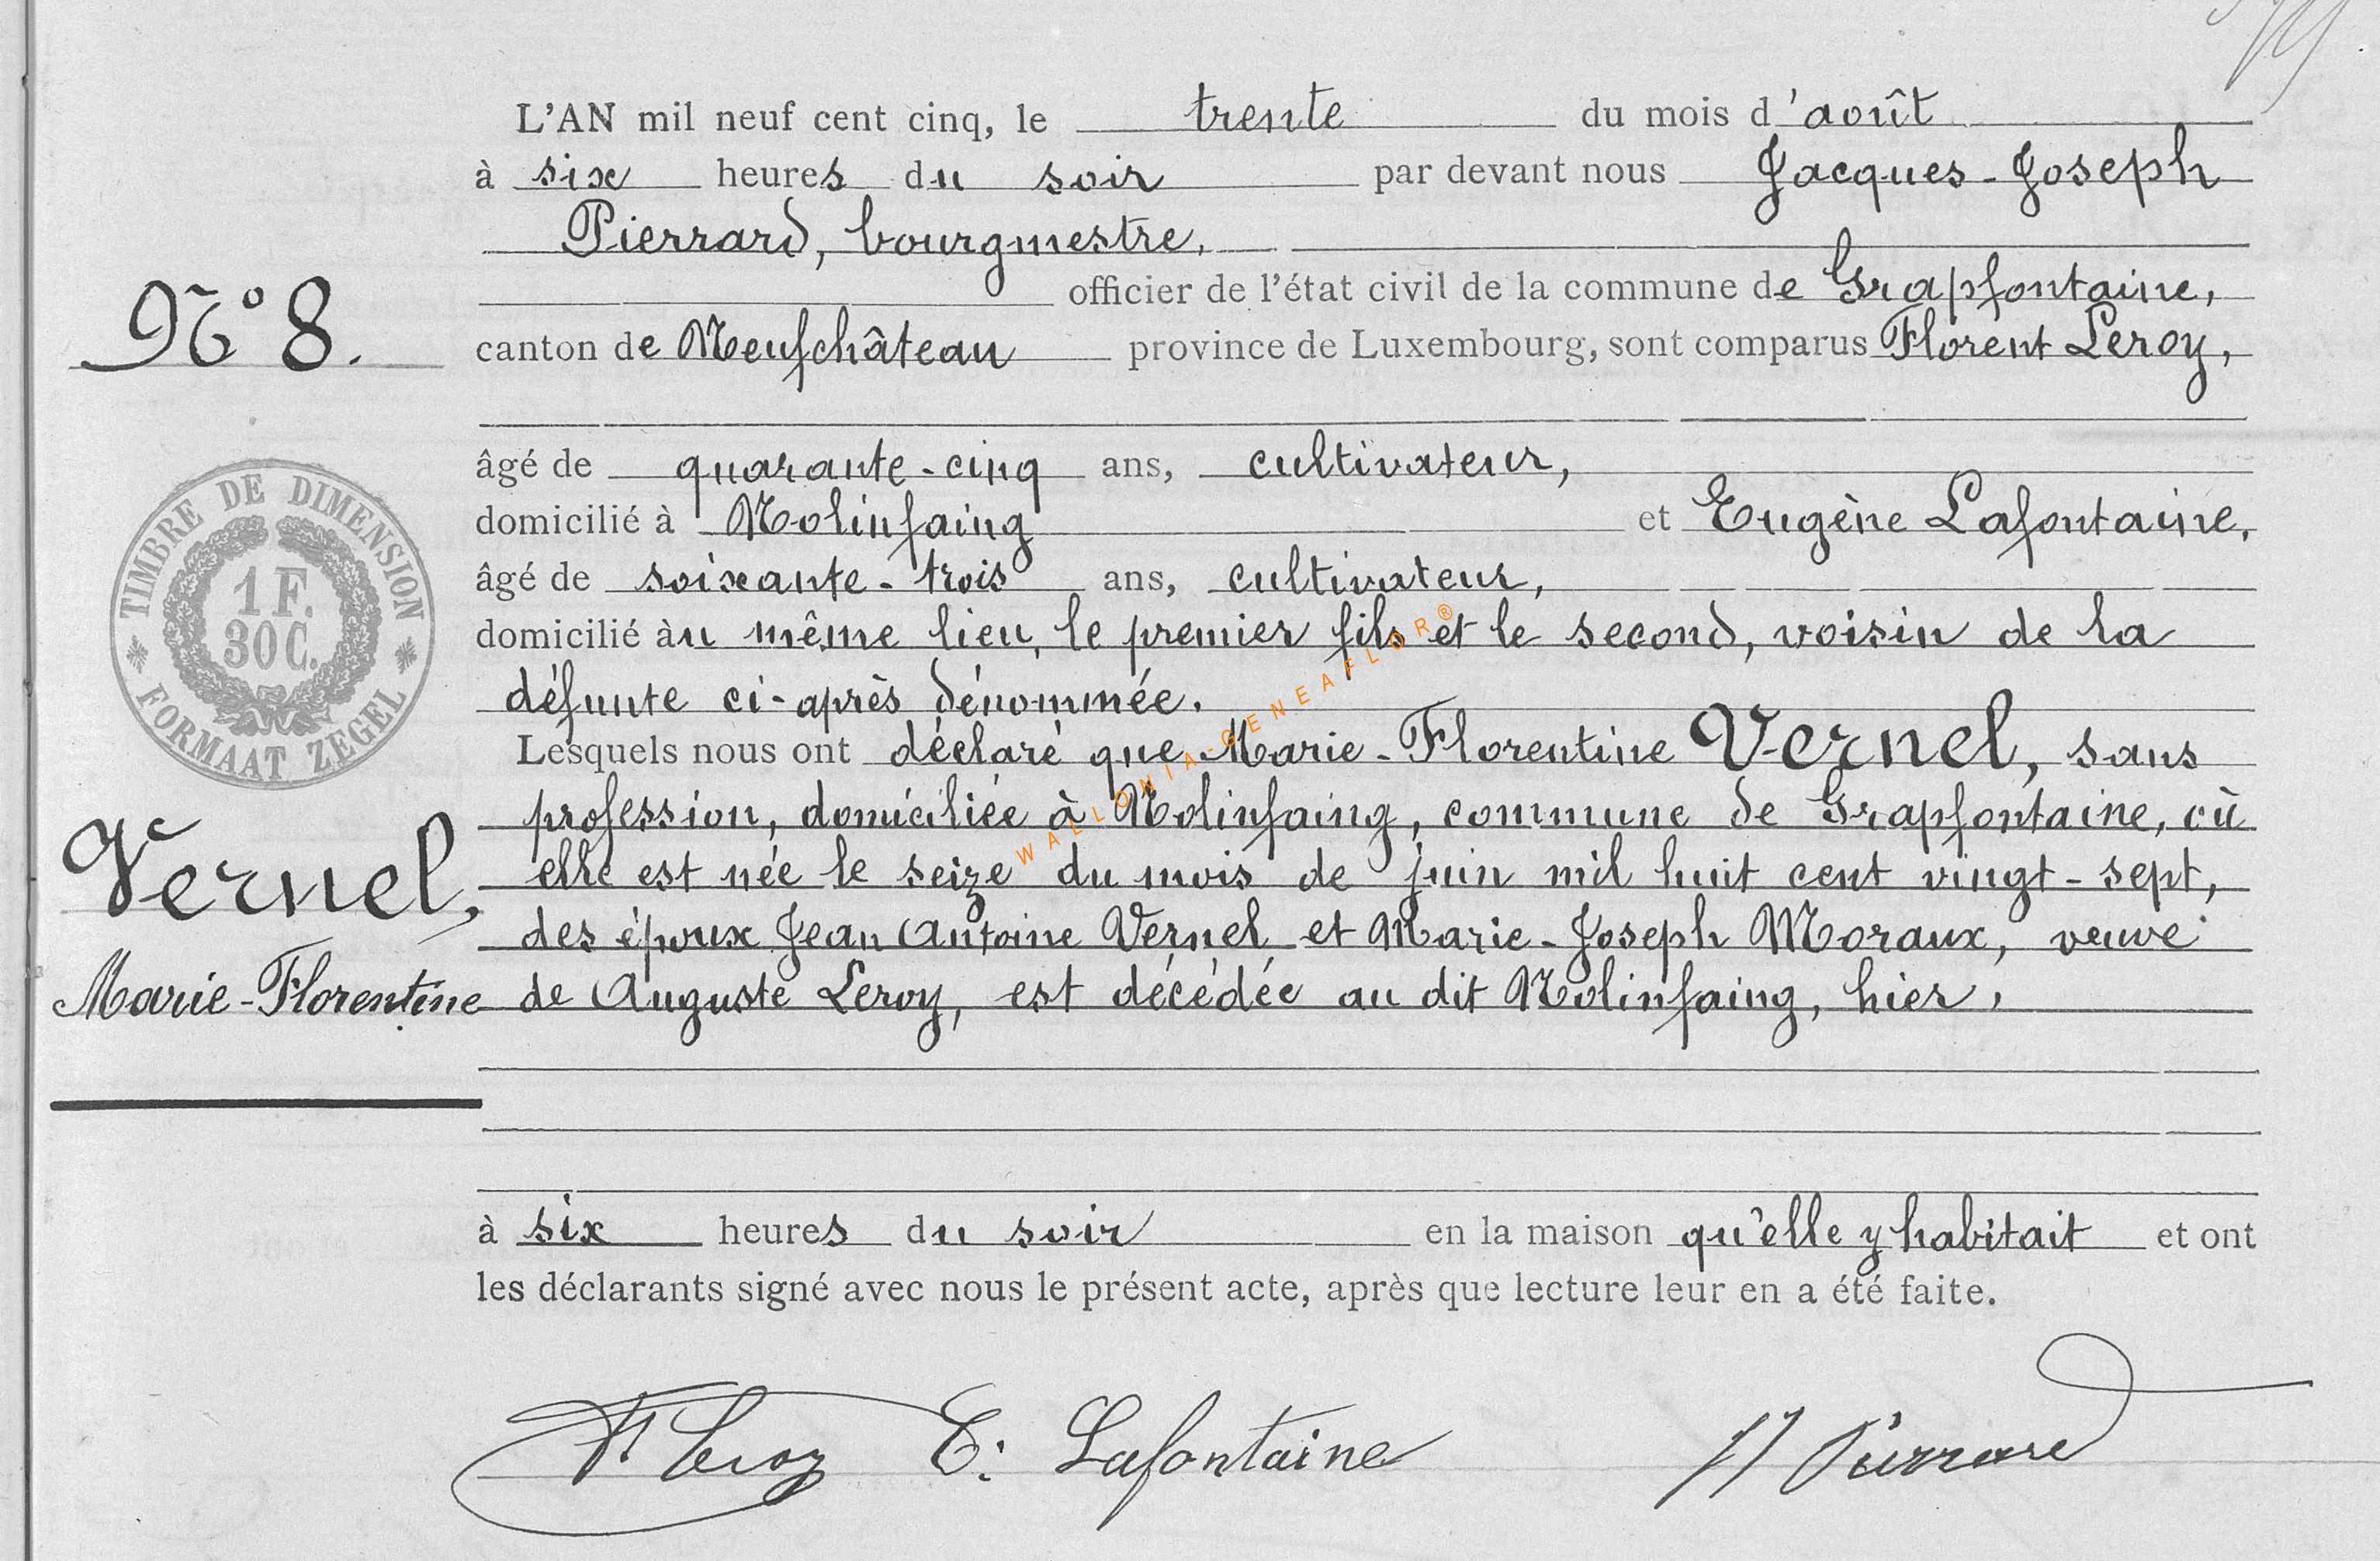 L'AN mil neuf cent cinq, le trente du mois d'août
à six heures du soir par devant nous Jacques-Joseph
Pierrard, bourgmestre,
officier de l'état civil de la commune de Grapfontaine,
N° 8.
canton de Neufchâteau province de Luxembourg, sont comparus Florent Leroy,
âgé de quarante-cinq ans, cultivateur,
domicilié à Molinfaing et Eugène Lafontaine,
âgé de soixante-trois ans, cultivateur,
domicilié au même lieu, le premier fils et le second, voisin de la
défunte ci-après dénommée.
TIMBRE DE DIMENSION
1 F.
30 C.
FORMAAT ZEGEL
Lesquels nous ont déclaré que Marie-Florentine Vernel, sans
profession, domiciliée à Molinfaing, commune de Grapfontaine, où
elle est née le seize du mois de juin mil huit cent vingt-sept,
Vernel,
des époux Jean Antoine Vernel et Marie-Joseph Moraux, veuve
Marie-Florentine
de Auguste Leroy, est décédée au dit Molinfaing, hier,
à six heures du soir en la maison qu'elle y habitait et ont
les déclarants signé avec nous le présent acte, après que lecture leur en a été faite.
Leroy E. Lafontaine Pierrard
WALLONIA-GENEAFLOR®